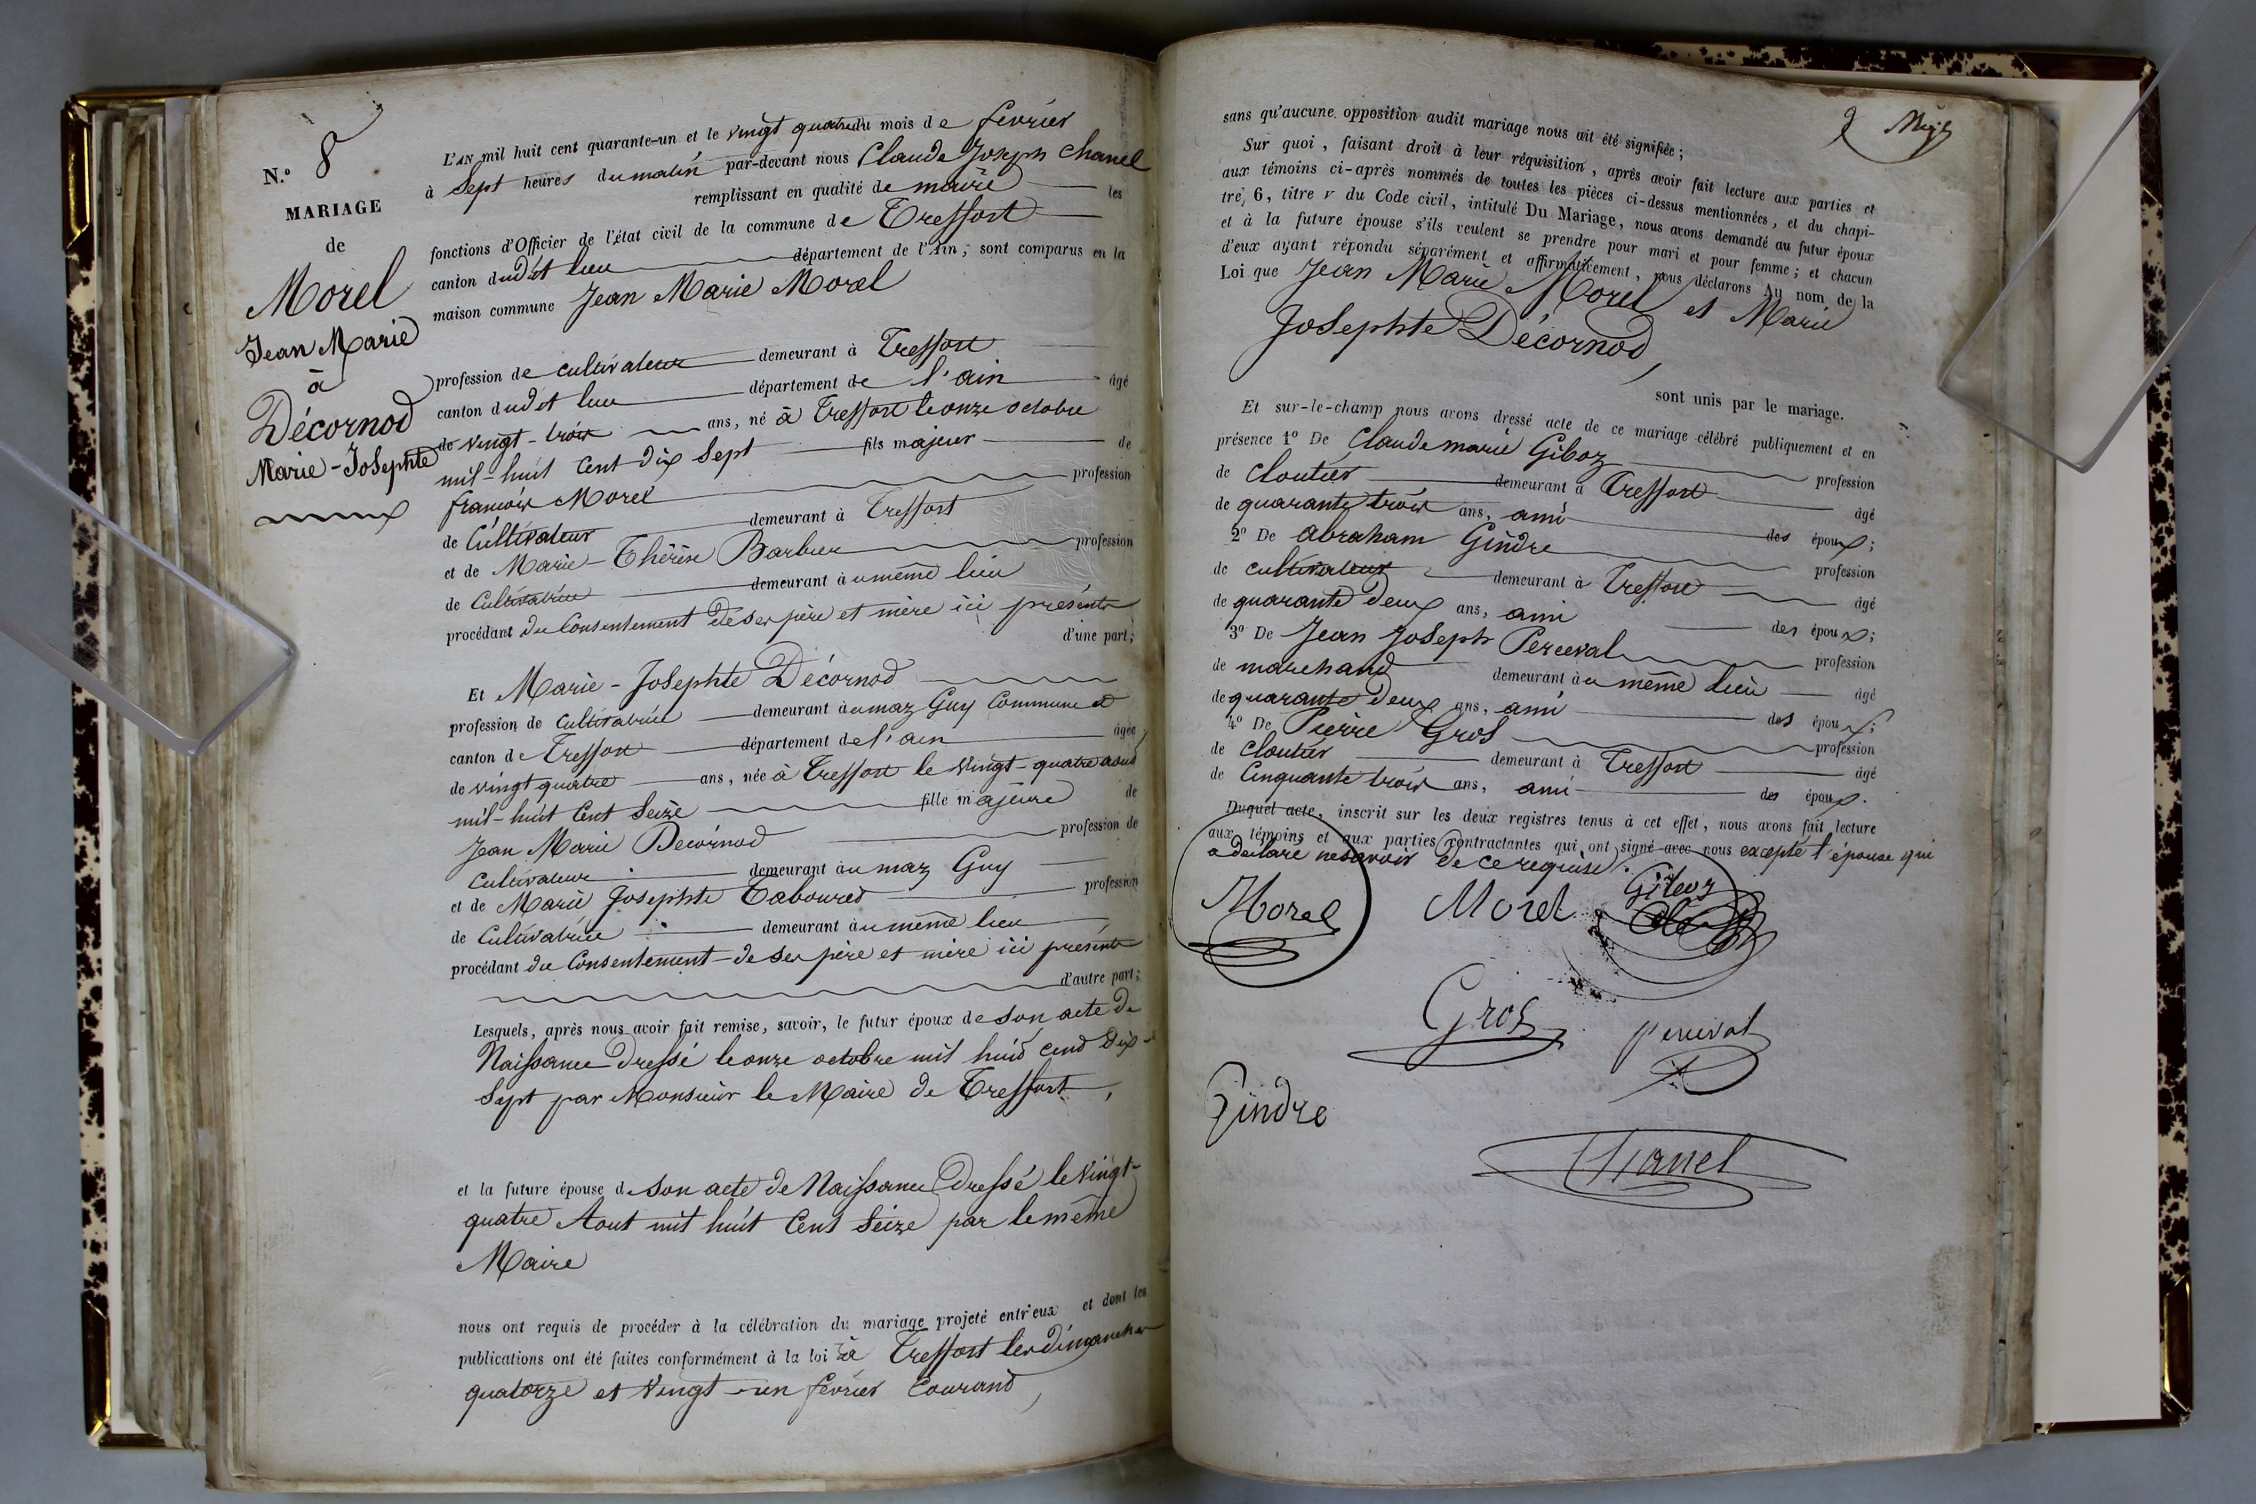 N.º 8
MARIAGE
de
Morel
Jean Marie
à
Décornod
Marie-Josephte
L'AN mil huit cent quarante-un et le vingt quatre du mois de février
à sept heures du matin par-devant nous Claude Joseph Chanel
remplissant en qualité de maire les
fonctions d'Officier de l'état civil de la commune de Treffort
canton dudit lieu département de l'Ain, sont comparus en la
maison commune Jean Marie Morel
profession de cultivateur demeurant à Treffort
canton dudit lieu département de l'ain âgé
de vingt-trois ans, né à Treffort le onze octobre
mil-huit cent dix sept fils majeur de
françois Morel profession
de Cultivateur demeurant à Treffort
et de Marie-Thérèse Barbier profession
de Cultivatrice demeurant au même lieu
procédant du Consentement de ses père et mère ici présents
d'une part;
Et Marie-Josephte Décornod
profession de cultivatrice demeurant au maz Guy Commune et
canton de Treffort département de l'ain âgée
de vingt quatre ans, née à Treffort le vingt-quatre aout
mil-huit Cent Seize fille majeure de
Jean Marie Decornod profession de
Cultivateur demeurant au maz Guy
et de Marie Josephte Tabouret profession
de Cultivatrice demeurant au même lieu
procédant du Consentement de ses père et mère ici présents
d'autre part;
Lesquels, après nous avoir fait remise, savoir, le futur époux de son acte de
Naissance dressé le onze octobre mil huit cent dix-
sept par Monsieur le Maire de Treffort,
et la future épouse de son acte de Naissance dressé le vingt-
quatre Aout mil huit Cent Seize par le même
Maire
nous ont requis de procéder à la célébration du mariage projeté entr'eux et dont les
publications ont été faites conformément à la loi à Treffort les dimanches
quatorze et vingt-un février Courant,
sans qu'aucune opposition audit mariage nous ait été signifiée;
Sur quoi, faisant droit à leur réquisition, après avoir fait lecture aux parties et
aux témoins ci-après nommés de toutes les pièces ci-dessus mentionnées, et du chapi-
tre 6, titre V du Code civil, intitulé Du Mariage, nous avons demandé au futur époux
et à la future épouse s'ils veulent se prendre pour mari et pour femme; et chacun
d'eux ayant répondu séparément et affirmativement, nous déclarons Au nom de la
Loi que Jean Marie Morel et Marie
Josephte Décornod,
sont unis par le mariage.
Et sur-le-champ nous avons dressé acte de ce mariage célébré publiquement et en
présence 1º De Claude marie Giboz profession
de Cloutier demeurant à Treffort âgé
de quarante trois ans, ami des époux;
2º De Abraham Gindre profession
de cultivateur demeurant à Treffort âgé
de quarante deux ans, ami des époux;
3º De Jean Joseph Perceval profession
de marchand demeurant au même lieu âgé
de quarante deux ans, ami des époux;
4º De Pierre Gros profession
de Cloutier demeurant à Treffort âgé
de Cinquante trois ans, ami des époux.
Duquel acte, inscrit sur les deux registres tenus à cet effet, nous avons fait lecture
aux témoins et aux parties contractantes qui ont signé avec nous excepté l'épouse qui
a déclaré ne savoir de ce requise.
Morel Morel Giboz
Gros perceval
Gindre
Chanel